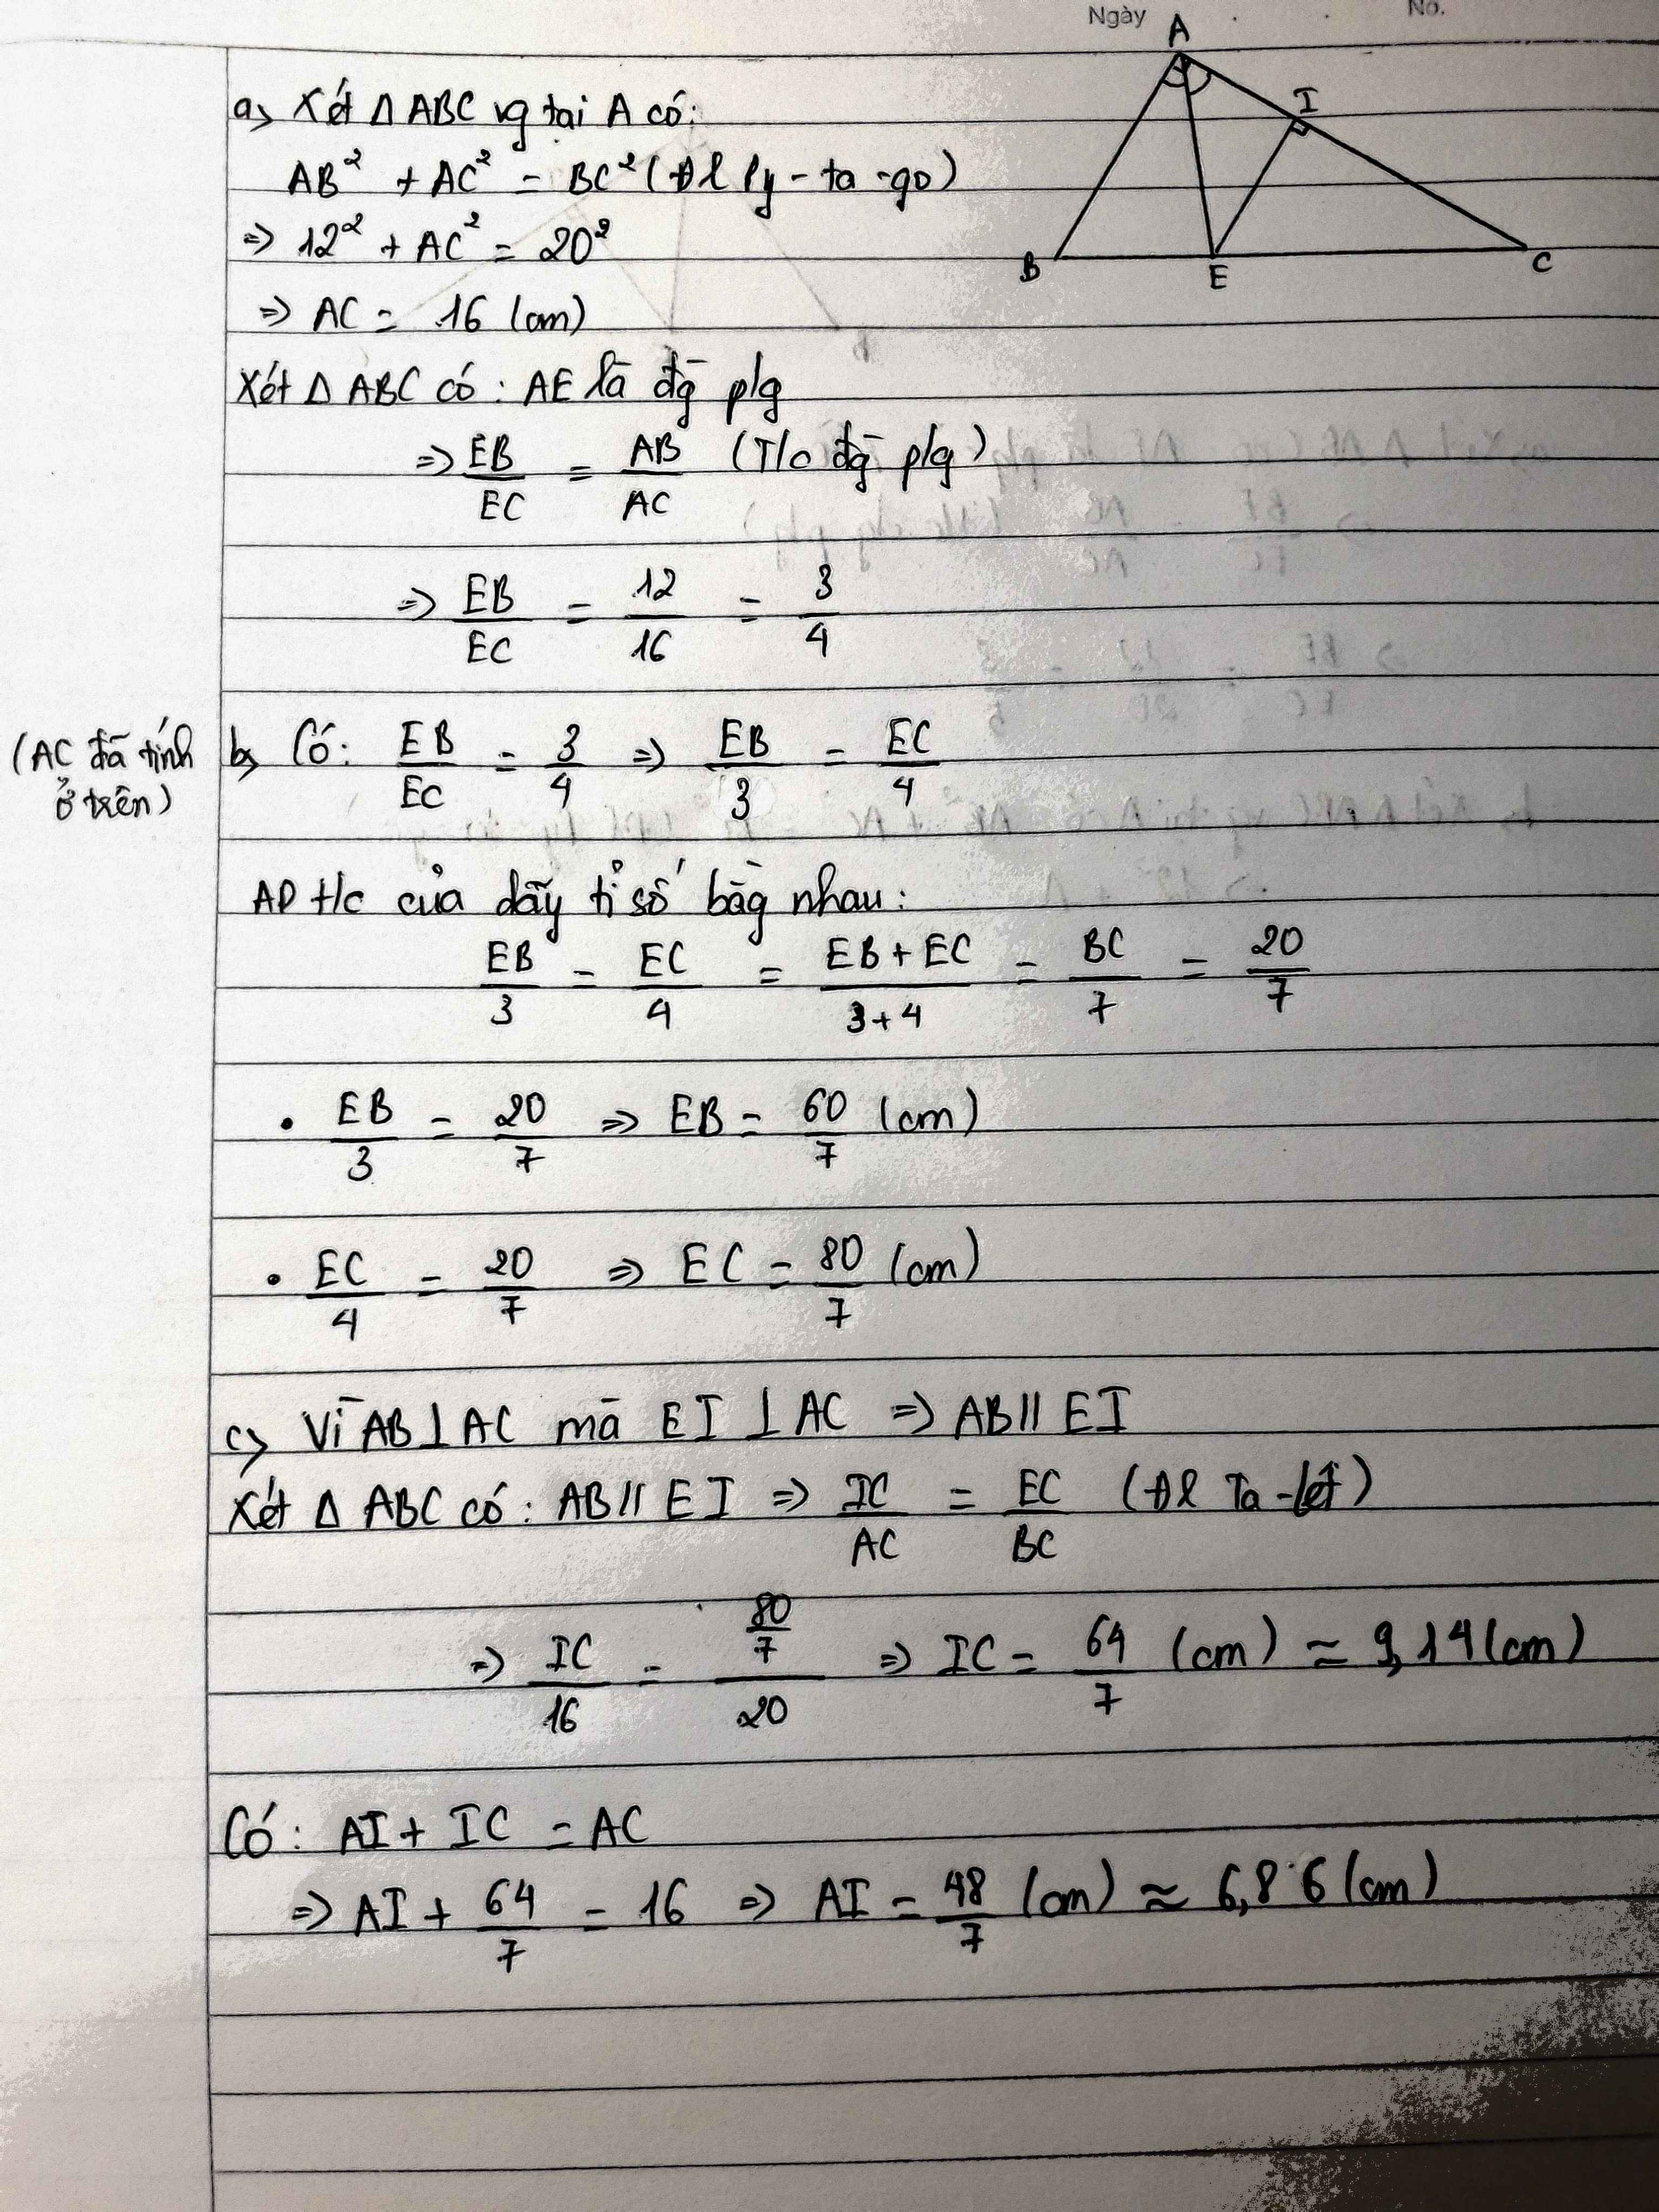 Ngày No.
A
I
B E C
a) Xét Δ ABC vg tại A có:
AB² + AC² = BC² (Đl Py-ta-go)
=> 12² + AC² = 20²
=> AC = 16 (cm)
Xét Δ ABC có: AE là đg p/g
=> EB/EC = AB/AC (T/c đg p/g)
=> EB/EC = 12/16 = 3/4
(AC đã tính
ở trên)
b) Có: EB/EC = 3/4 => EB/3 = EC/4
AD t/c của dãy tỉ số bằg nhau:
EB/3 = EC/4 = EB+EC/3+4 = BC/7 = 20/7
• EB/3 = 20/7 => EB = 60/7 (cm)
• EC/4 = 20/7 => EC = 80/7 (cm)
c) Vì AB⊥AC mà EI⊥AC => AB//EI
Xét Δ ABC có: AB//EI => IC/AC = EC/BC (Đl Ta-lét)
=> IC/16 = 80/7/20 => IC = 64/7 (cm) ≈ 9,14(cm)
Có: AI + IC = AC
=> AI + 64/7 = 16 => AI = 48/7 (cm) ≈ 6,86 (cm)